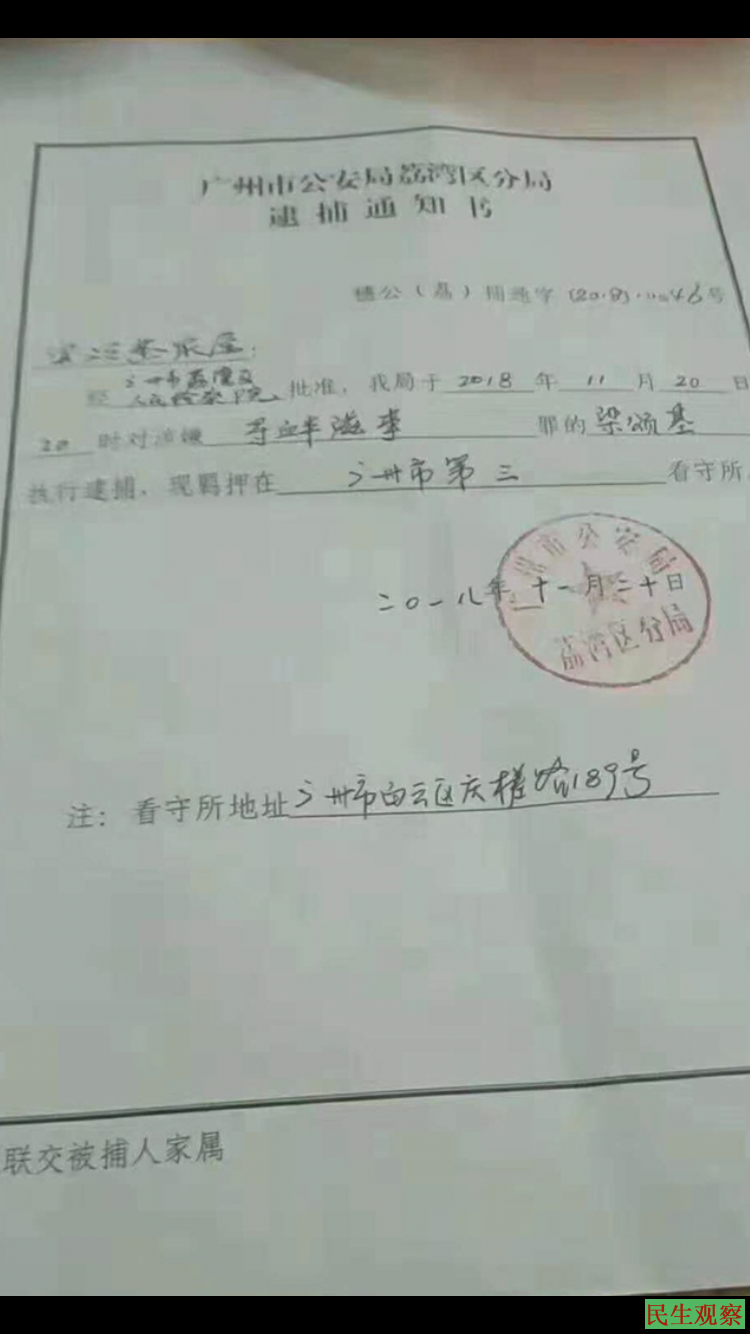 广州市公安局荔湾区分局
逮捕通知书
穗公(荔)捕通字(2018) 46号
家属:
经广州市荔湾区人民检察院批准,我局于2018年11月20日
20时对涉嫌寻衅滋事罪的梁颂基
执行逮捕,现羁押在广州市第三看守所。
二〇一八年十一月二十日
广州市公安局
荔湾区分局
注:看守所地址广州市白云区庆槎路189号
联交被捕人家属
民生观察